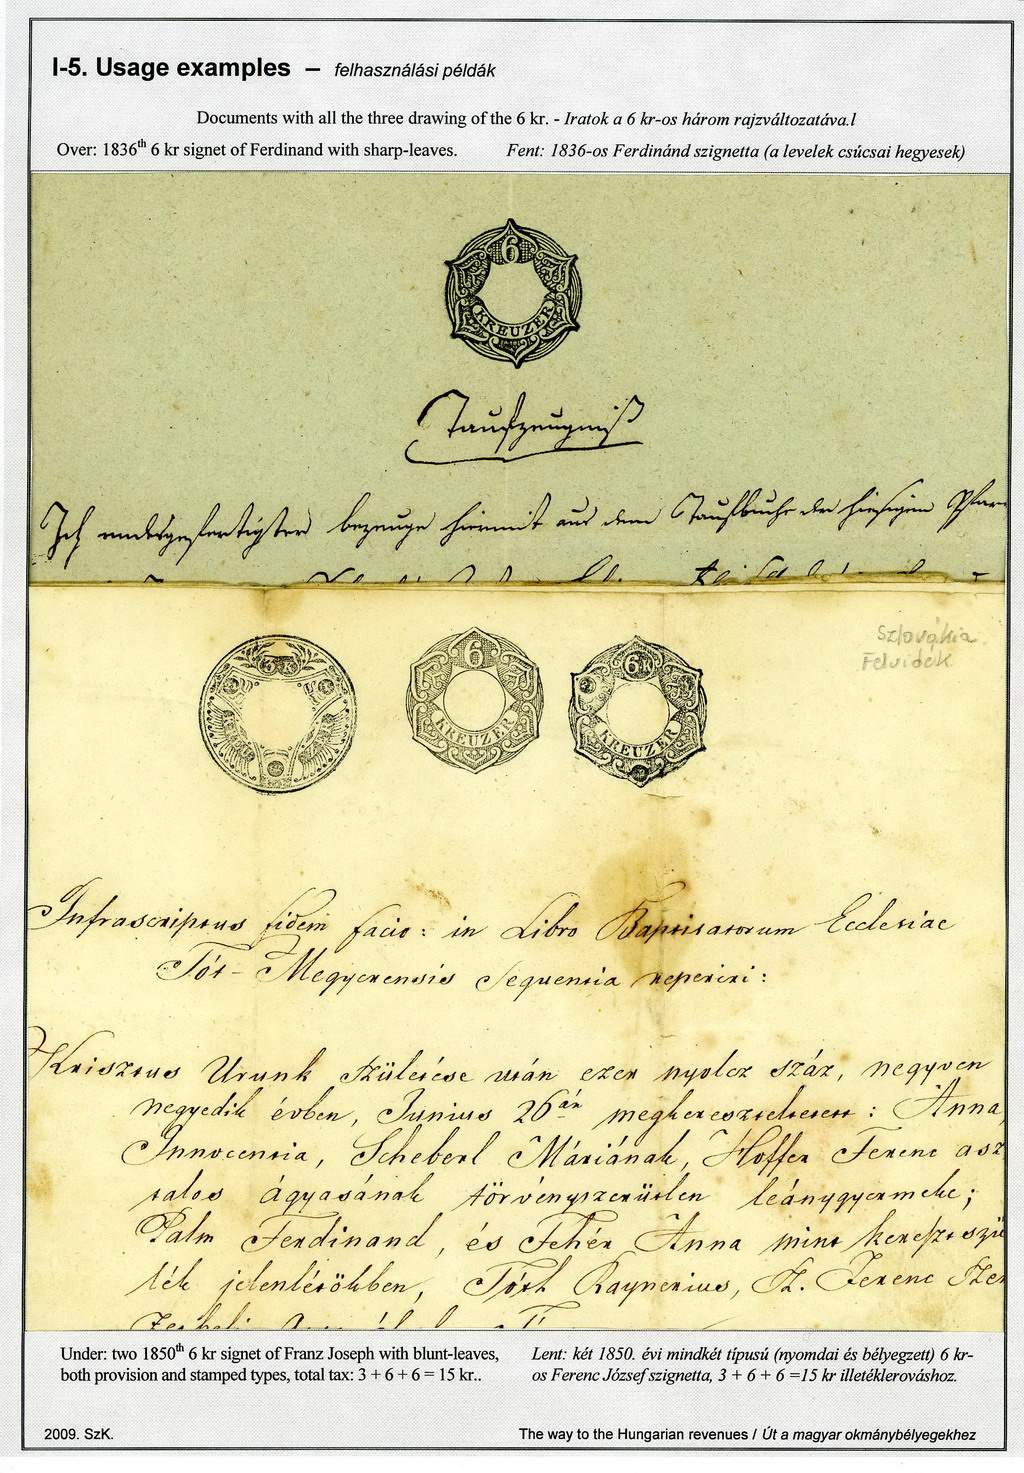 I-5. Usage examples – felhasználási példák
Documents with all the three drawing of the 6 kr. - Iratok a 6 kr-os három rajzváltozatáva.l
Over: 1836th 6 kr signet of Ferdinand with sharp-leaves. Fent: 1836-os Ferdinánd szignetta (a levelek csúcsai hegyesek)
6
KREUZER
Taufzeugniß
Ich endesgefertigter bezeuge hiermit aus dem Taufbuche der hiesigen Pfar-
Szlovákia
Felvidék
3 K
6
KREUZER
6 K
KREUZER
Infrascriptus fidem facio: in Libro Baptisatorum Ecclesiae
Tót-Megyerensis sequentia reperiri:
Krisztus Urunk születése után ezer nyolcz száz, negyven
negyedik évben, Junius 26án megkereszteltetett: Anna
Innocentia, Scheberl Máriának, Hoffer Ferenc asz
talos ágyasának törvényszerütlen leánygyermeke;
Palm Ferdinand, és Fehér Anna mint kereszt szü
lék jelenlétökben, Tóth Raynerius, Sz. Ferenc Szer
Under: two 1850th 6 kr signet of Franz Joseph with blunt-leaves, Lent: két 1850. évi mindkét típusú (nyomdai és bélyegzett) 6 kr-
both provision and stamped types, total tax: 3 + 6 + 6 = 15 kr.. os Ferenc József szignetta, 3 + 6 + 6 =15 kr illetéklerováshoz.
2009. SzK. The way to the Hungarian revenues / Út a magyar okmánybélyegekhez